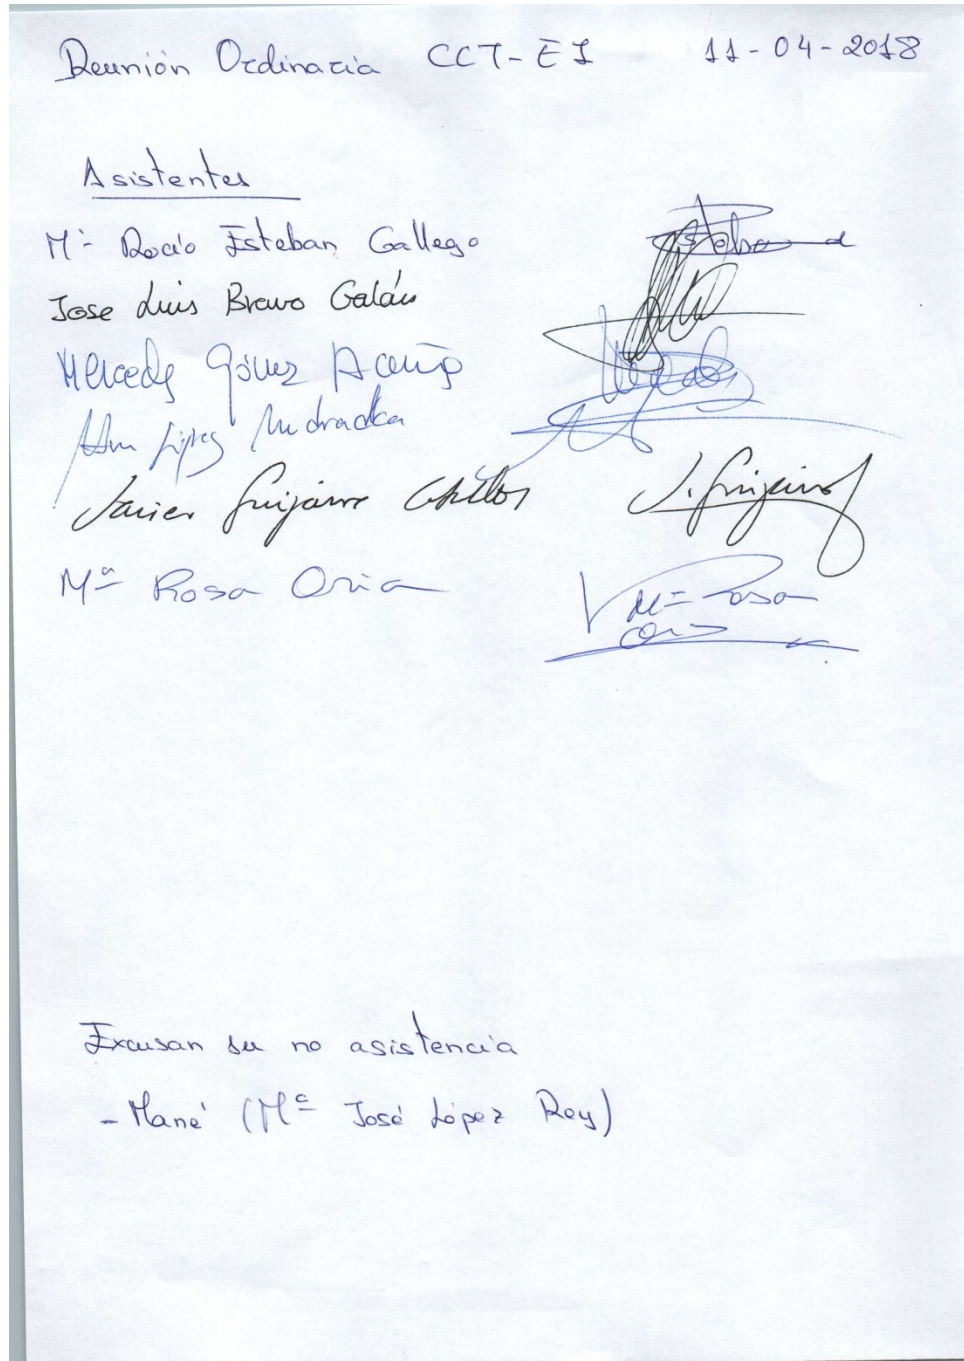 Reunión Ordinaria CCT-EI 11-04-2018
Asistentes
Mª Rocío Esteban Gallego
Jose Luis Bravo Galán
Mercedes Gómez
López
Javier Guijarro
Mª Rosa Oria
Mª Rosa
Excusan su no asistencia
- Mané (Mª José López Rey)